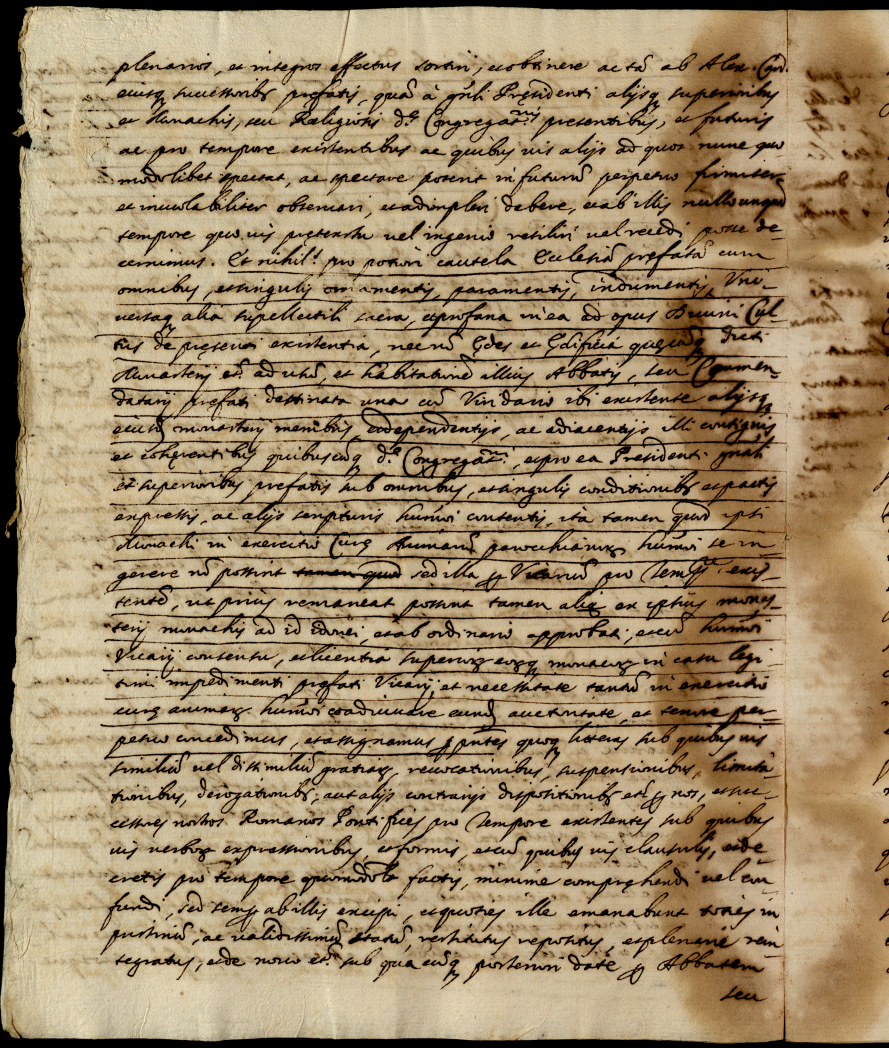 plenarios, et integros effectus sortiri, et obtinere ac tã ab Alex. Card.
eiusq. successoribs prefatis, quã à gñli Pręsidenti alijsq. superioribus
et Monachis, seu Religiosis d.ę Congregãnis presentibus, et futuris
ac pro tempore existentibus ac quibus uis alijs ad quos nunc quo
modolibet spectat, ac spectare poterit in futurũ perpetuo firmiter
et inuiolabiliter obseruari, et adimpleri debere, et ab illis nullo unquã
tempore quouis pretextu uel ingenio resiliri uel recedi posse de=
cernimus. Et nihil.s pro potiori cautela Ecclesiã prefatã cum
omnibus, et singulis ornamentis, paramentis, indumentis, Vni=
uersaq. alia supellectili sacra, et profana in ea ad opus Diuini Cul=
tus de pręsenti existentia, nec nõ Ędes et Ędificia quęcũq. dicti
Monasterij et.m ad usũ, et habitationẽ illius Abbatis, seu Commen=
datarij prefati destinata una cũ Viridario ibi existente alijsq.
eiusd. monasterij membris, et dependentijs, ac adiacentijs illi contiguis
et cohęrentibus quibuscũq. d.ę Congregãni, et pro ea Presidenti gñali
et superioribus prefatis sub omnibus, et singulis conditionibs et pactis
expressis, ac alijs scripturis huiũoi contentis, ita tamen quod ipsi
Monachi in exercitio Curę Animarũ parochianorũ huiũoi se in
gerere nõ possint tamen quod sed illa p Vicariũ pro Tempore exis=
tentẽ, ut prius remaneat possint tamen aliq ex ipsius monas=
terij monachis ad id idonei, et ab ordinario approbati, et cũ huiũoi
Vicarij consensu, et licentia superiorũ eorũq. monachorũ in casu legi=
timi impedimenti prefati Vicarij, et necessitate tantũ in exercitio
curę animarũ huiũoi coadiuuare eund. auctoritate, et tenore per=
petuo concedimus, et assignamus p pñtes quoq. litteras sub quibus uis
similiũ uel dissimiliũ gratiarũ, reuocationibus, suspensionibus, limita=
tionibus, derogationibs, aut alijs contrarijs dispositionibs et.m p nos, et suc=
cessores nostros Romanos Pontifices pro Tempore existentes sub quibus
uis uerborũ expressionibus, et formis, et cũ quibus uis clausulis, et de
cretis pro tempore quomodolt factis, minime comprehendi uel con
fundi, sed semp ab illis excipi, et quoties ille emanabunt toties in
pristinũ, ac ualidissimũ statũ, restitutas repositas, et plenariè rein=
tegratas, et de nouo et.m sub quacũq. posteriori datẽ p Abbatem
seu